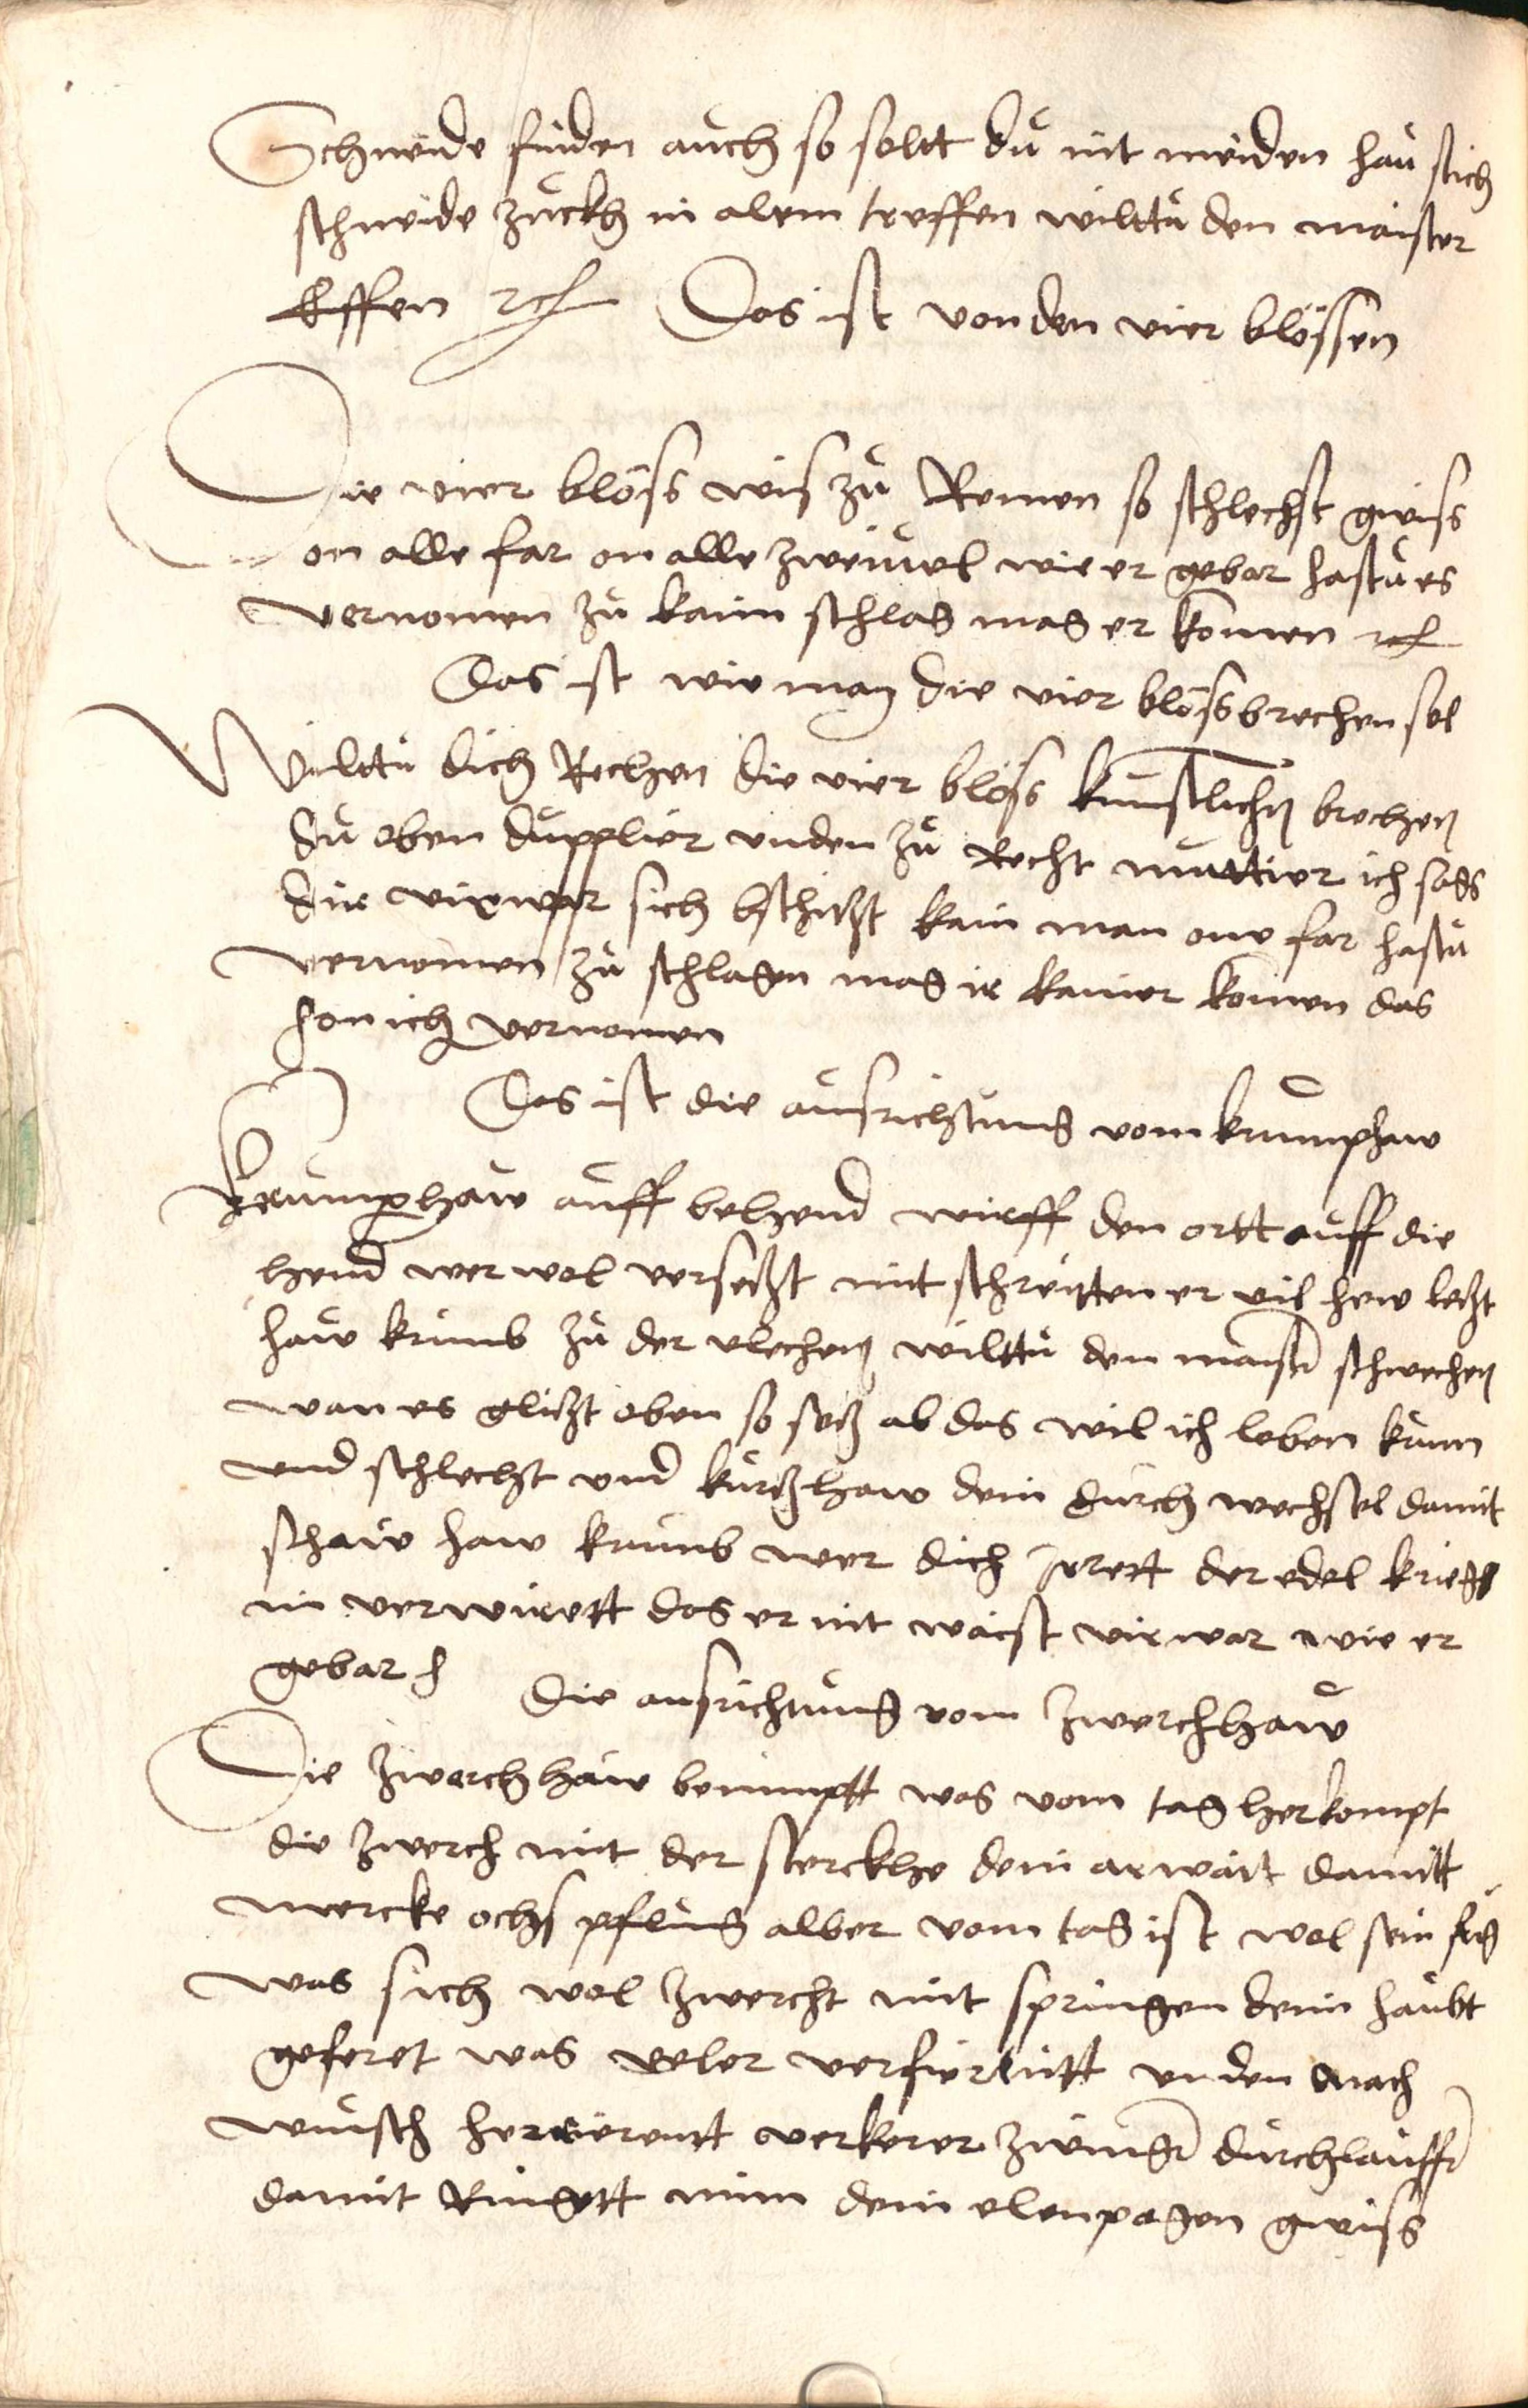 Schneide finden auch so soltt du nit meiden hau stich
schneide zuckh in alem treffen wilttu den maister
Effen rcf Das ist von den vier blössen
Die vier blöss wis zu Remen so schlechst gwiss
on alle far on alle zweiuel wie er gebar hastu es
vernomen zu kaim schlag mag er komen rcf
Das ist wie man die vier blöss brechen sol
Wilttu dich Rechen die vier blöss kunstlichen brechen
du oben dupplier unden zu Recht muttier ich sags
dir virwar sich bschitzt kain man one far hastu
vernomen zu schlagen mag ir kainer komen das
hon ich vernomen
Das ist die ausrichtung vom krumphaw
Krumphaw auff behend wirff den ortt auff die
hend wer wol versetzt mit schreitten er vil hew letzt
haw krumb zu der vlechen wilttu den maister schwechen
wan es glitzt oben so setz ab das wil ich loben krum
und schlecht und kurtzhaw dein durch wechsel damit
schaw haw krumb wer dich irrett der edel kriegs
in verwirett das er nit waist virwar wie er
gebar
Die ausrichtung vom zwerchhaw
Die zwerchhaw benimptt was vom tag herkompt
die zwerch mit der sterckhe dein arwait damitt
mercke ochs pflug alber vom tag ist wol sein fug
was sich wol zwercht mit springen dem haubt
geferet was veler verfiertutt unden nach
wunsch hererürentt verkerer zwinger durchlauffer
damit Ringett nim dein elenpogen gwiss